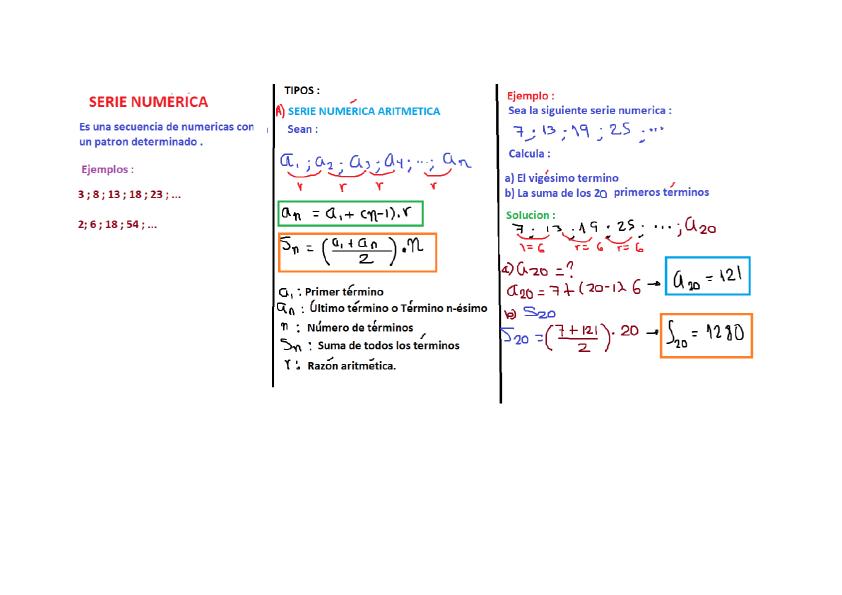 SERIE NUMÉRICA
Es una secuencia de numericas con
un patron determinado .
Ejemplos :
3 ; 8 ; 13 ; 18 ; 23 ; ...
2; 6 ; 18 ; 54 ; ...
TIPOS :
A) SERIE NUMÉRICA ARITMETICA
Sean :
a₁ ; a₂ ; a₃ ; a₄ ; ... ; aₙ
r r r r
aₙ = a₁ + (n-1).r
Sₙ = (a₁ + aₙ / 2) . n
a₁ : Primer término
aₙ : Último término o Término n-ésimo
n : Número de términos
Sₙ : Suma de todos los términos
r : Razón aritmética.
Ejemplo :
Sea la siguiente serie numerica :
7 ; 13 ; 19 ; 25 ; ...
Calcula :
a) El vigésimo termino
b) La suma de los 20 primeros términos
Solucion :
7 ; 13 ; 19 ; 25 ; ... ; a₂₀
r=6 r=6 r=6
a) a₂₀ = ?
a₂₀ = 7 + (20-1) 6 → a₂₀ = 121
b) S₂₀
S₂₀ = (7 + 121 / 2) . 20 → S₂₀ = 1280